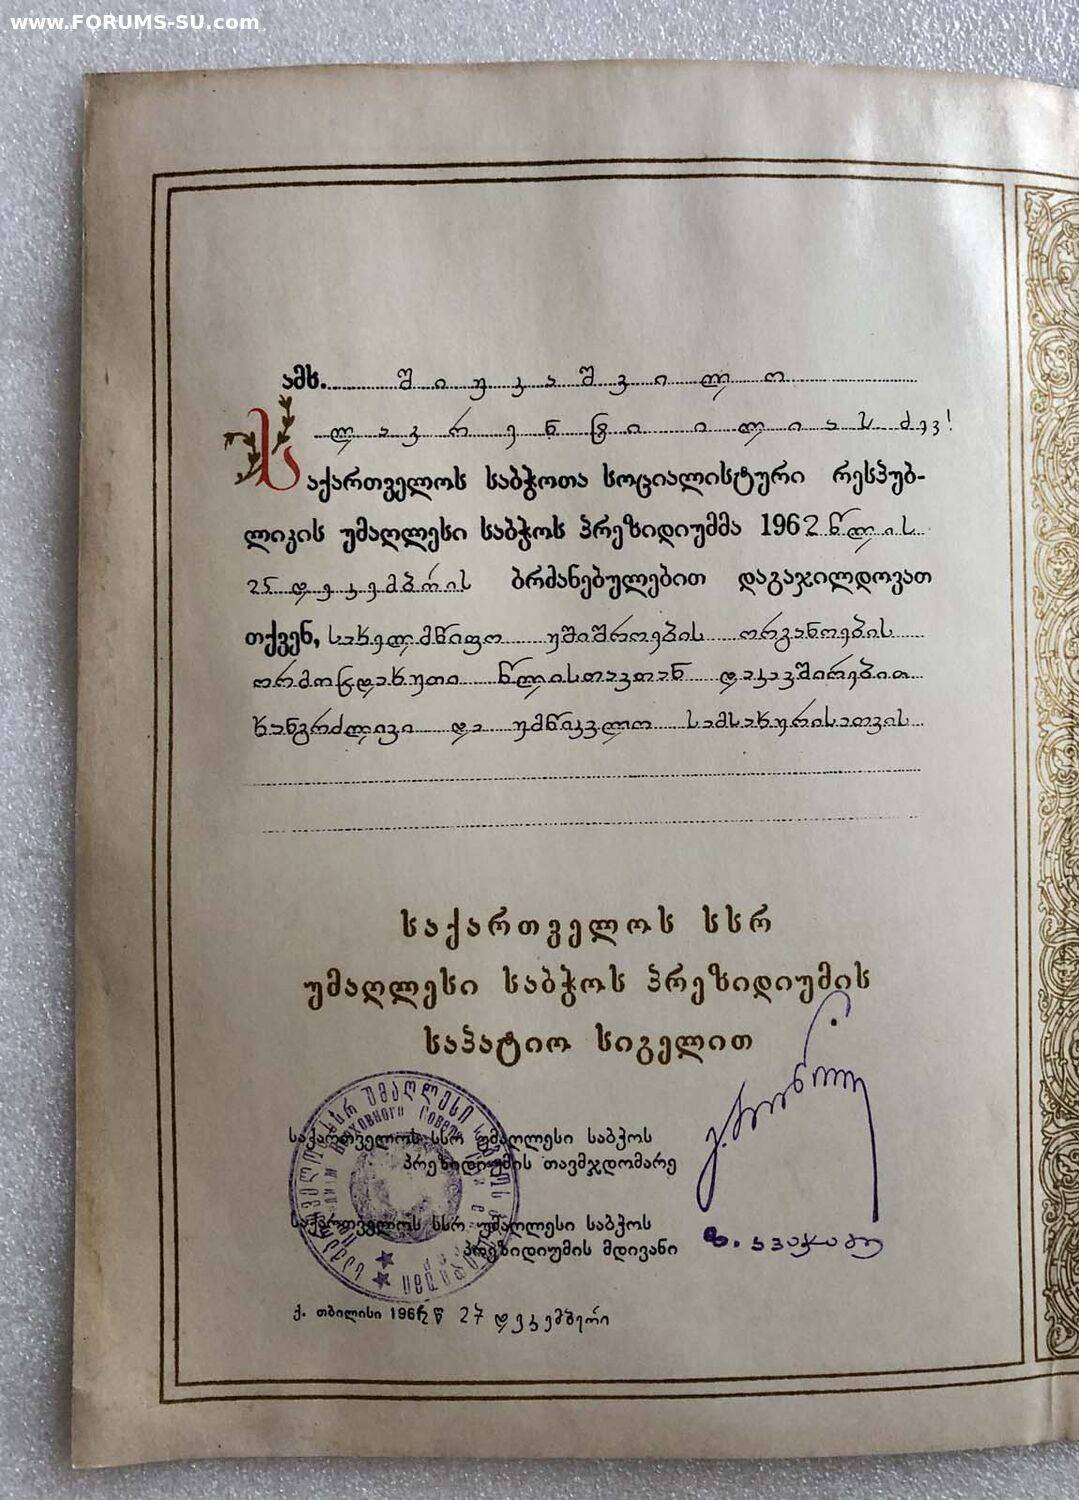 www.FORUMS-SU.com
ამხ. შიუკაშვილო
ლავრენტი ილიას ძევ!
საქართველოს საბჭოთა სოციალისტური რესპუბ-
ლიკის უმაღლესი საბჭოს პრეზიდიუმმა 1962 წლის
25 დეკემბრის ბრძანებულებით დაგაჯილდოვათ
თქვენ, სახელმწიფო უშიშროების ორგანოების
ორმოცდახუთი წლისთავთან დაკავშირებით
ხანგრძლივი და უმწიკვლო სამსახურისათვის
საქართველოს სსრ
უმაღლესი საბჭოს პრეზიდიუმის
საპატიო სიგელით
საქართველოს სსრ უმაღლესი საბჭოს
პრეზიდიუმის თავმჯდომარე
საქართველოს სსრ უმაღლესი საბჭოს
პრეზიდიუმის მდივანი
ქ. თბილისი 1962 წ 27 დეკემბერი